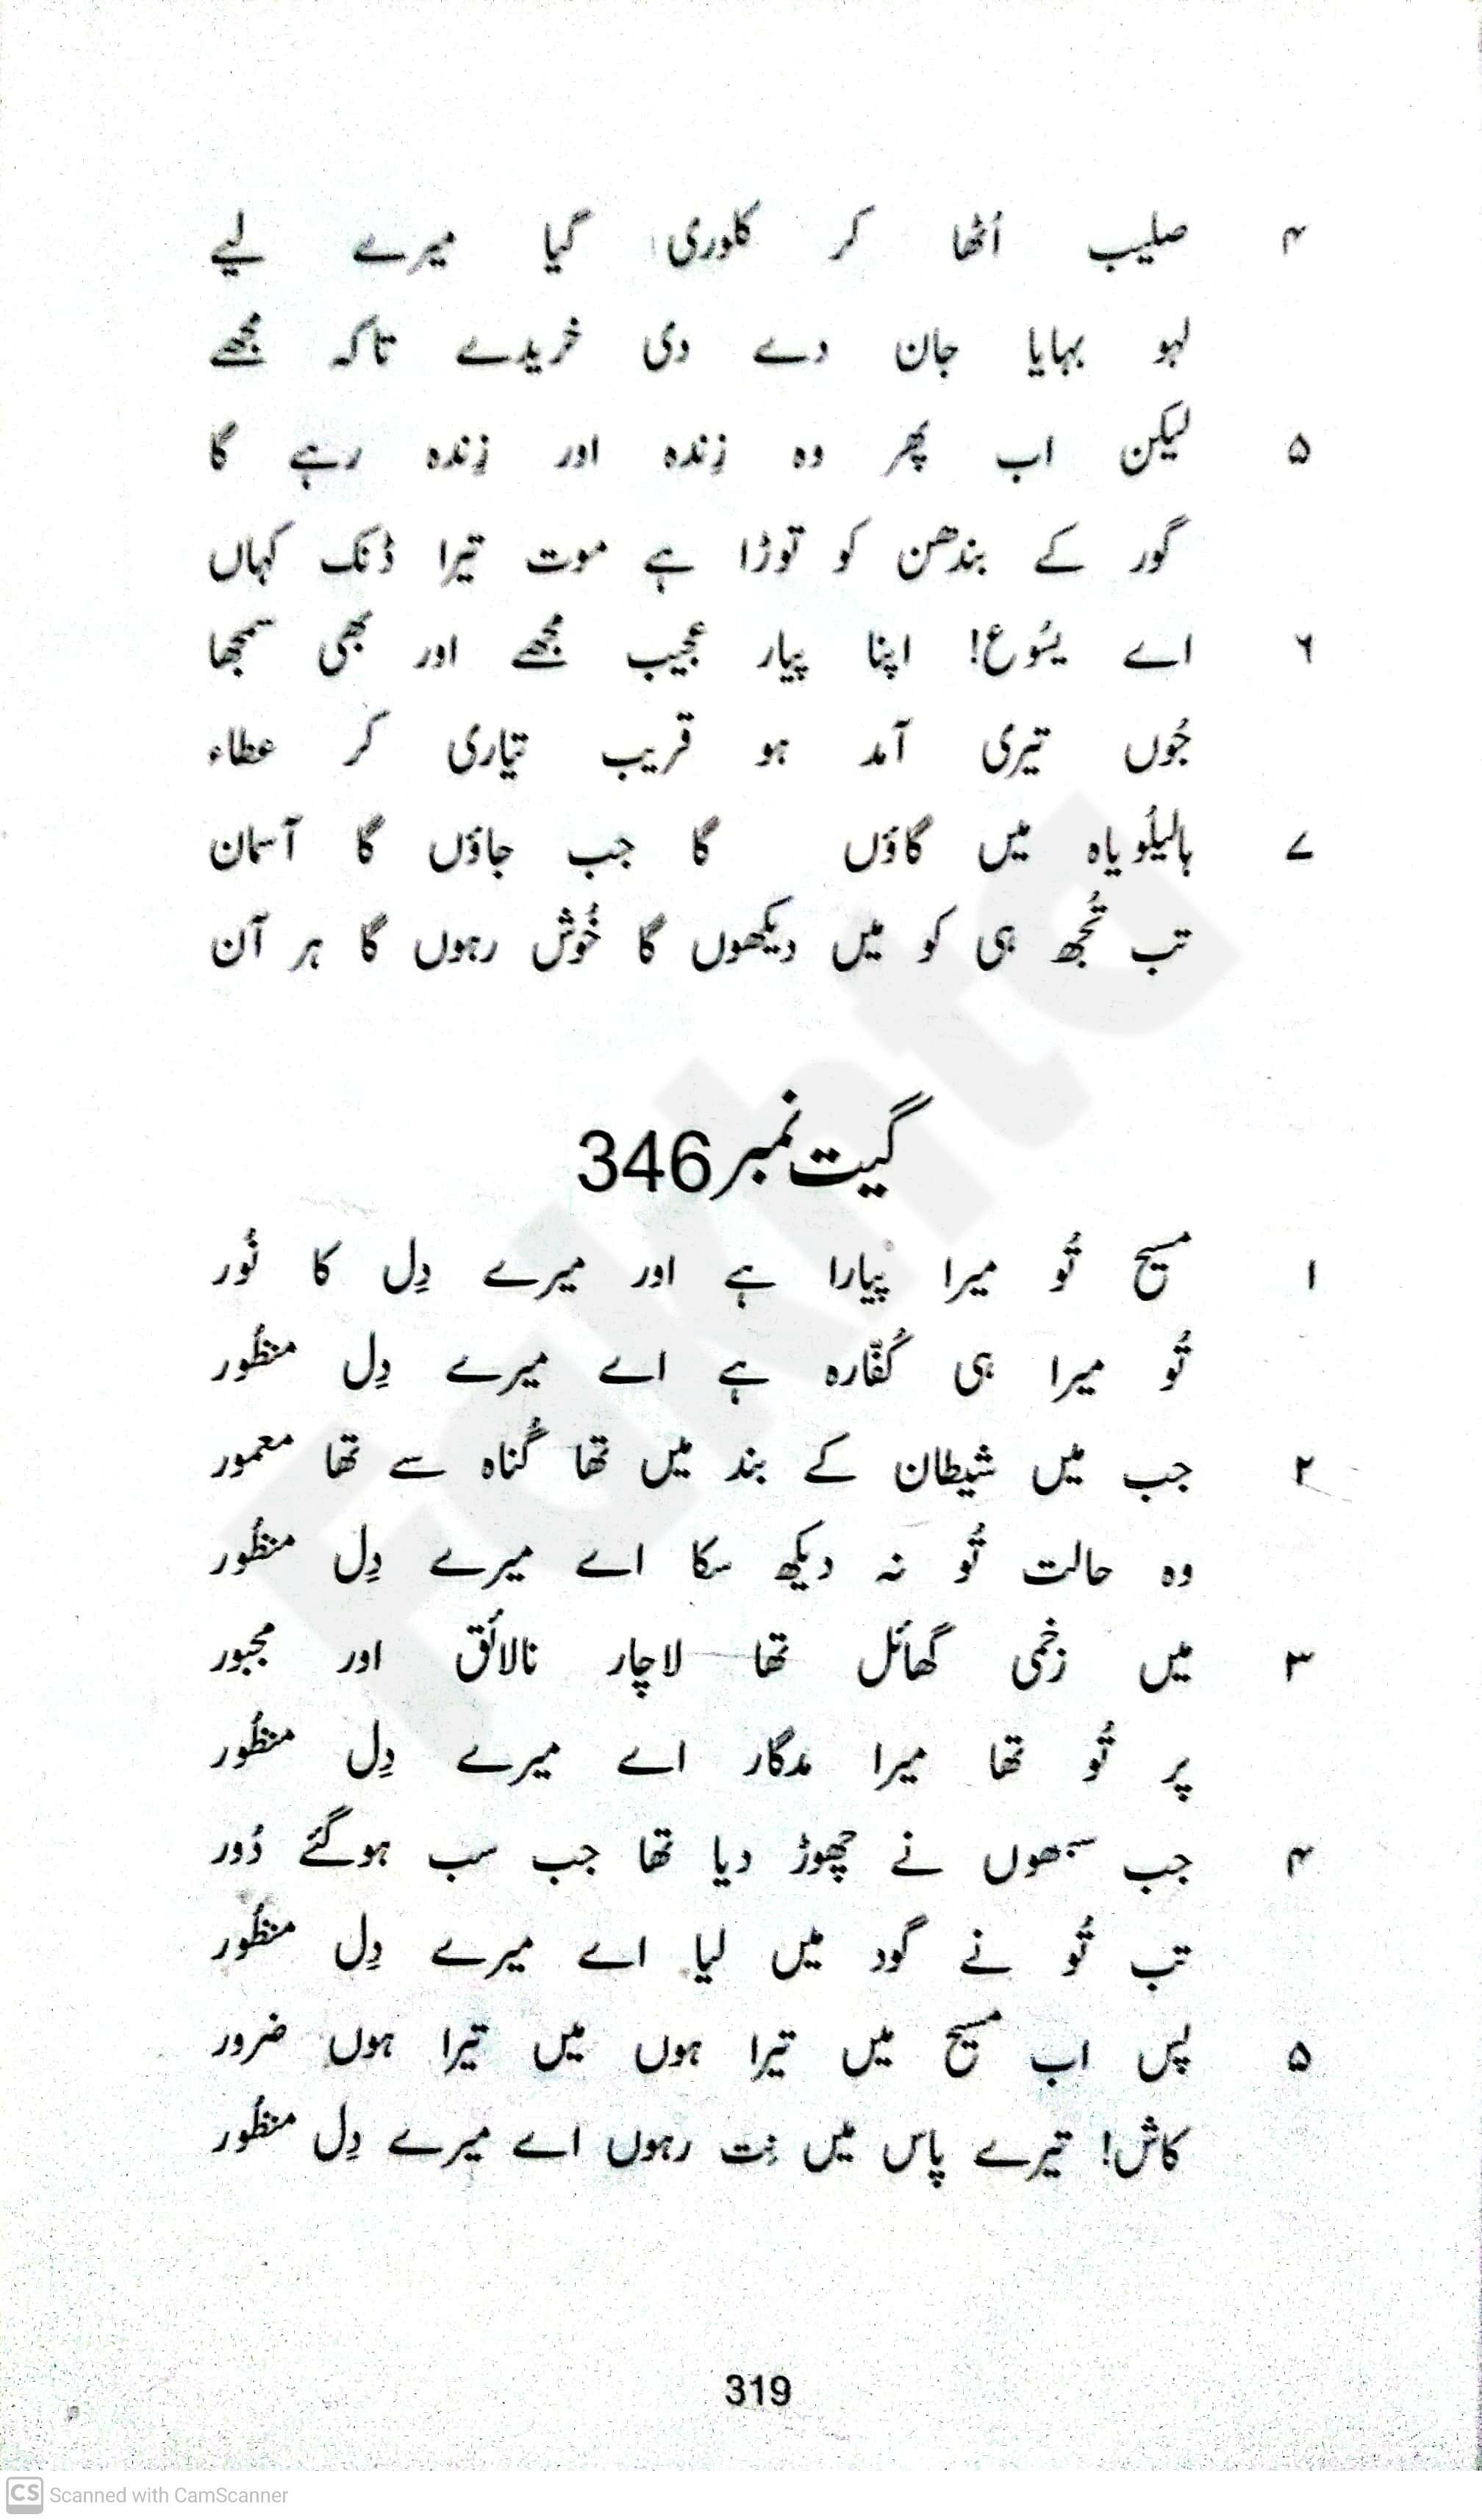 ۴ صلیب اُٹھا کر کلوری گیا میرے لیے
لہو بہایا جان دے دی خریدے تاکہ مُجھے
۵ لیکن اب پھِر وہ زِندہ اور زِندہ رہے گا
گور کے بندھن کو توڑا ہے موت تیرا ڈنک کہاں
۶ اے یسُوع! اپنا پیار عجیب مُجھے اور بھی سمجھا
جُوں تیری آمد ہو قریب تیّاری کر عطاء
۷ ہالیلُویاہ میں گاؤں گا جب جاؤں گا آسمان
تب تُجھ ہی کو میں دیکھوں گا خُوش رہوں گا ہر آن
گیت نمبر 346
۱ مسیح تُو میرا پیارا ہے اور میرے دِل کا نُور
تُو میرا ہی کُفّارہ ہے اے میرے دِل منظُور
۲ جب میں شیطان کے بند میں تھا گُناہ سے تھا معمور
وہ حالت تُو نہ دیکھ سکا اے میرے دِل منظُور
۳ میں زخمی گھائل تھا لاچار نالائق اور مجبور
پر تُو تھا میرا مدگار اے میرے دِل منظُور
۴ جب سبھوں نے چھوڑ دیا تھا جب سب ہوگئے دُور
تب تُو نے گود میں لیا اے میرے دِل منظُور
۵ پس اب مسیح میں تیرا ہوں میں تیرا ہوں ضرور
کاش! تیرے پاس میں نِت رہوں اے میرے دِل منظُور
319
CS Scanned with CamScanner
Fakhta